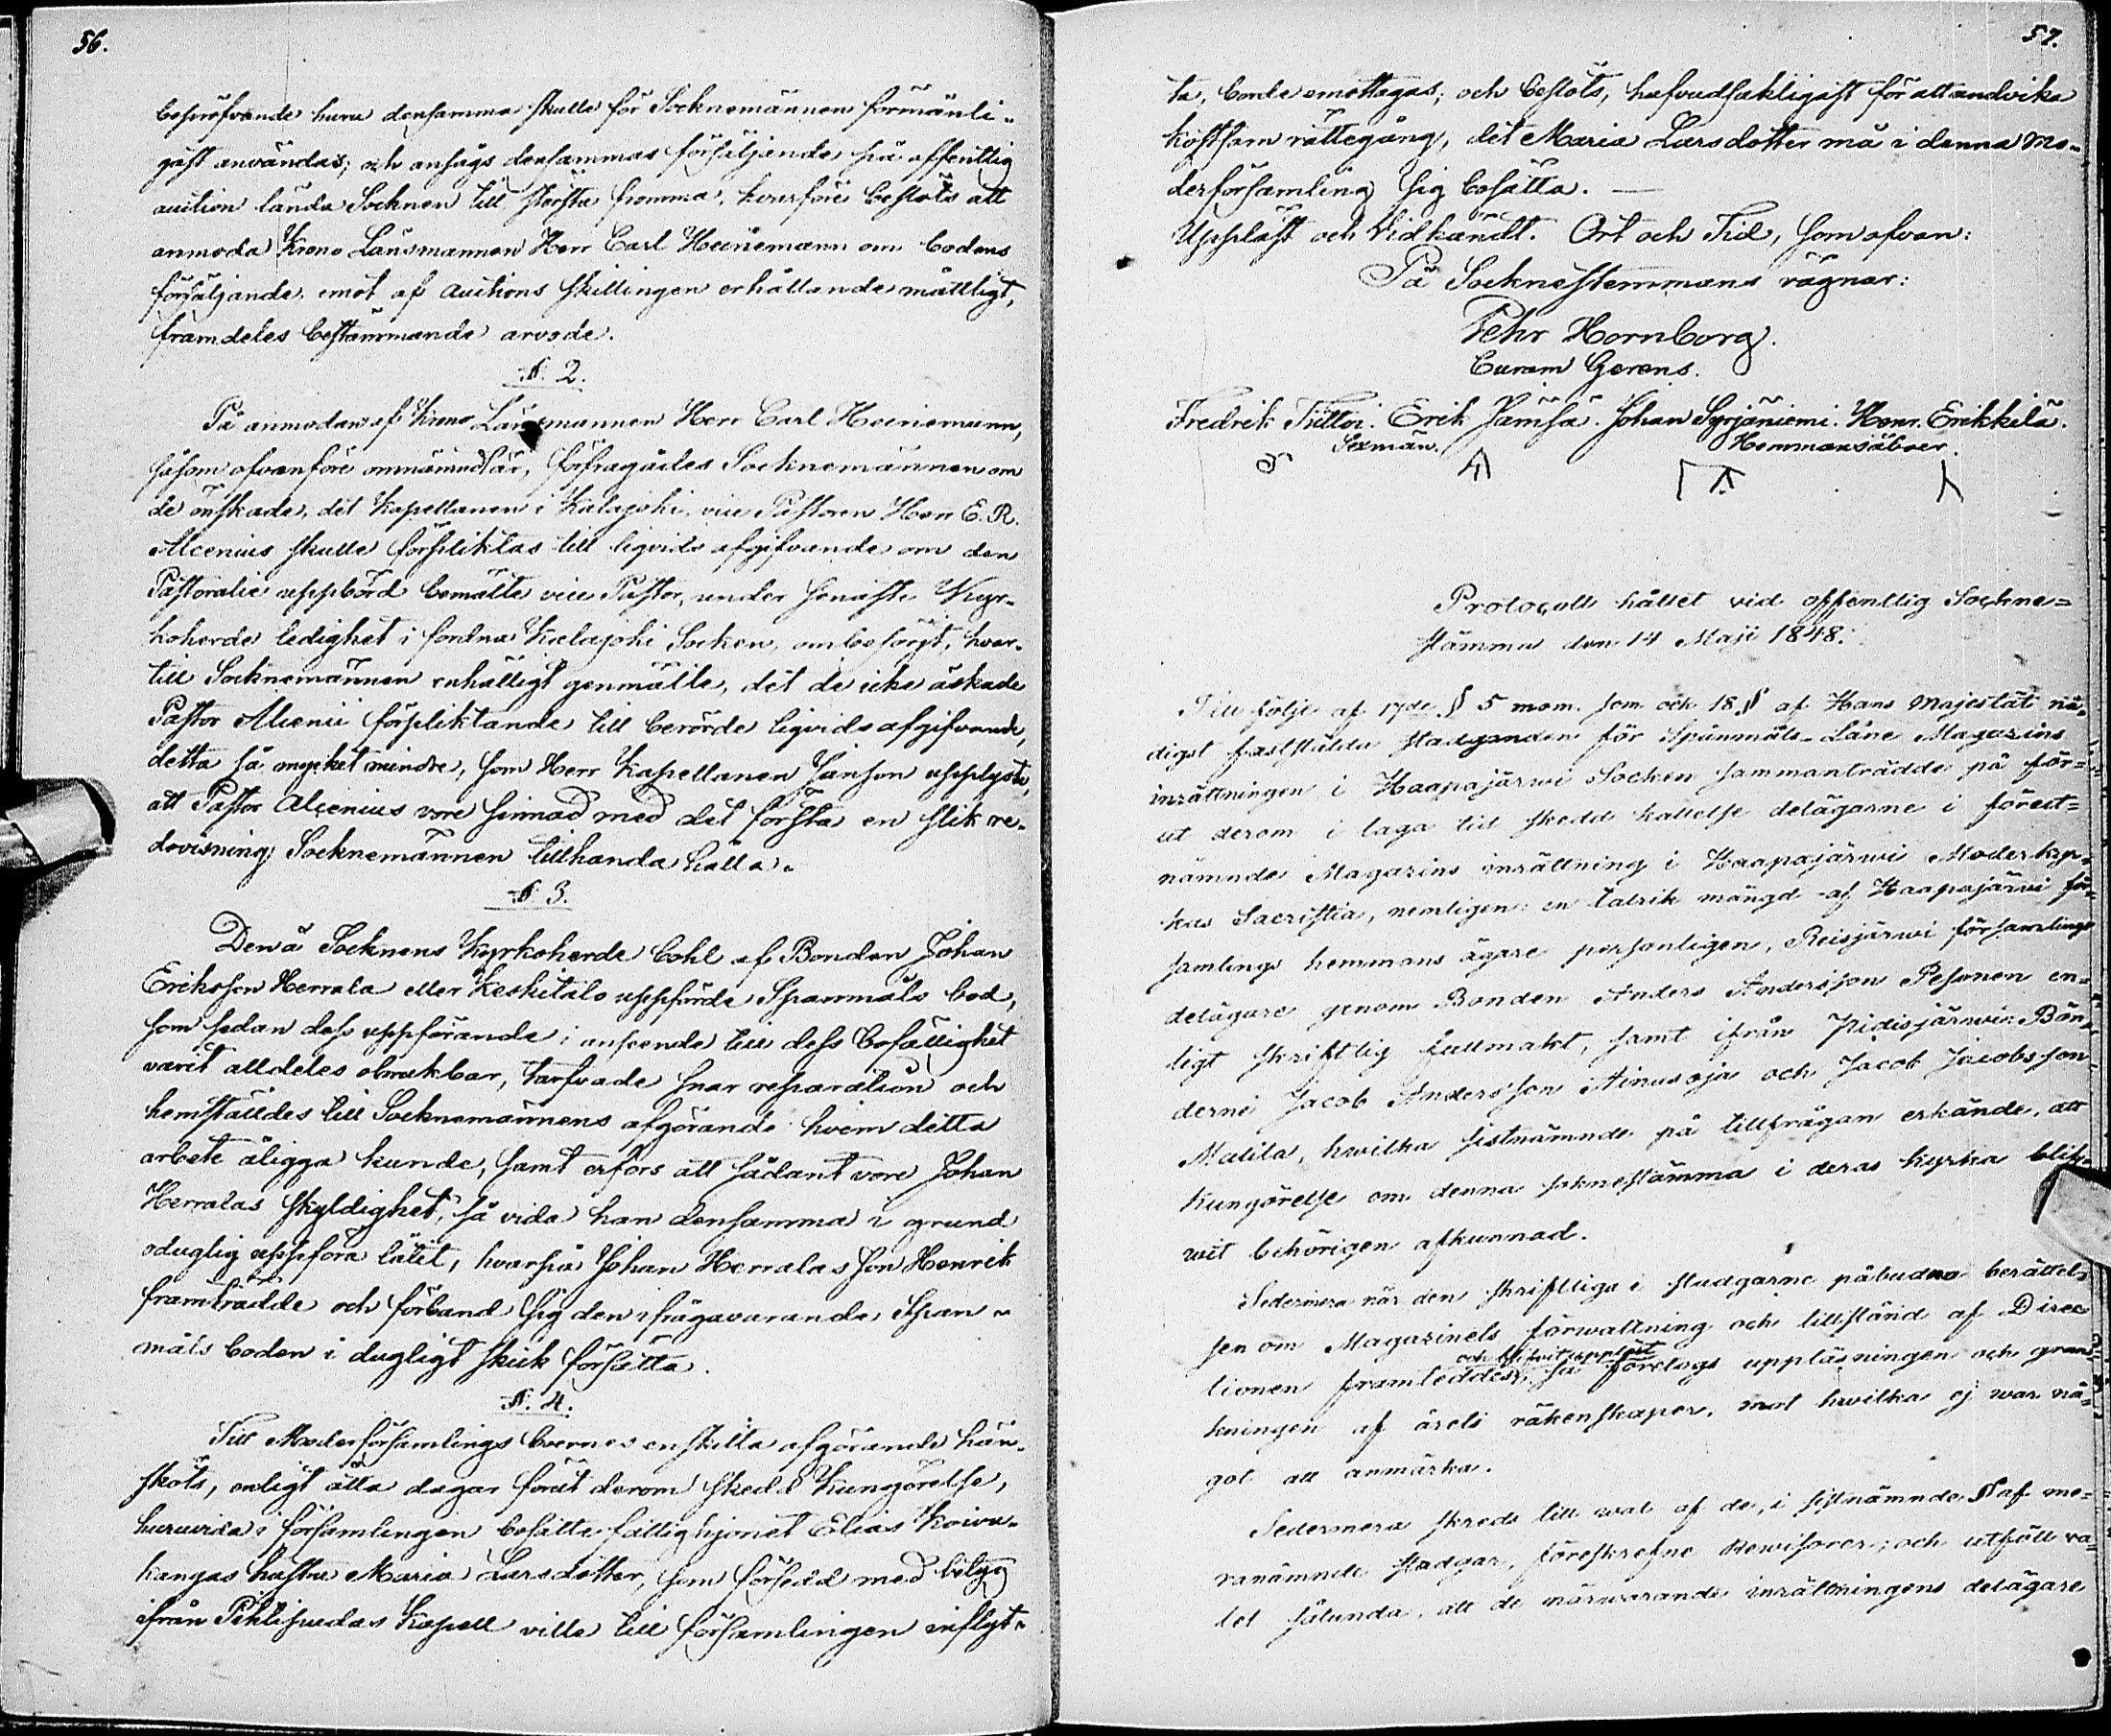 56.
bepröfvande huru densamma skulle för Socknemännen förmånli-
gast användas; och ansågs densammas försäljande på offentlig
auction lända Socknen till största fromma, hvarföre beslöts att
anmoda Krono Länsmannen Herr Carl Heinemann om bodens
försäljande, emot af auctions skillingen erhållande måttligt,
framdeles bestämmande arvode.
§. 2.
På anmodan af Krono Länsmannen Herr Carl Heinemann,
såsom ofvanföre omnämndt är, förfrågades Socknemännen om
de önskade, det Kapellanen i Kalajoki, vice Pastoren Herr E. R.
Alcenius skulle förpliktas till liqvids afgifvande om den
Pastoralie uppbörd bemälte vice Pastor, under senaste Kyr-
koherde ledighet i fordna Kalajoki Socken, ombesörgt, hvar-
till Socknemännen enhälligt genmälte, det de icke äskade
Pastor Alcenii förpliktande till berörde liqvids afgifvande,
detta så mycket mindre, som Herr Kapellanen Janson upplyste,
att Pastor Alcenius vore sinnad med det första en slik re-
dovisning Socknemännen tillhanda hålla.
§. 3.
Den å Socknens Kyrkoherde bohl af Bonden Johan
Ericksson Herrala eller Keskitalo uppförde Spannmåls bod,
som sedan dess uppförande i anseende till dess bofällighet
varit alldeles obrukbar, tarfvade snar reparation och
hemställdes till Socknemännens afgörande hvem detta
arbete åligga kunde, samt erfors att sådant vore Johan
Herralas skyldighet, så vida han densamma i grund
oduglig uppföra låtit, hvarpå Johan Herralas son Henrik
framträdde och förband sig den ifrågavarande Span-
måls boden i dugligt skick försätta.
§. 4.
Till Moderförsamlings boernes enskilta afgörande hän-
sköts, enligt åtta dagar förut derom skedd Kungörelse,
huruvida i församlingen bosatte fattighjonet Elias Koivu-
kangas hustru Maria Larsdotter, som försedd med betyg
ifrån Pihtipudas Kapell ville till församlingen inflyt-
57.
ta, borde emottagas; och beslöts, hufvudsakligast för att undvika
kostsam rättegång, det Maria Larsdotter må i denna Mo-
derförsamling sig bosätta. —
Uppläst och Vidkändt. Ort och Tid, som ofvan:
På Socknestemmans vägnar:
Pehr Hornborg.
Curam Gerens.
Fredrik Tuttori. Erik Jämsä. Johan Syrjäniemi. Henr. Erikkilä.
Sexmän. Hemmansåboer.
Protocoll hållet vid offentlig Sockne-
stämma den 14 Maji 1848.
Till följe af 17de § 5 mom. som och 18 § af Hans Majestät nå-
digst fastställda stadganden för Spanmåls-Låne Magazins
inrättningen i Haapajärwi Socken sammanträdde på för-
ut derom i laga tid skedd kallelse delägarne i förut-
nämnde Magazins inrättning i Haapajärwi Moderkyr-
kas Sacristia, nemligen: en talrik mängd af Haapajärwi för-
samlings hemmans ägare personligen, Reisjärwi församlings
delägare genom Bonden Anders Andersson Pesonen en-
ligt skriftlig fullmakt, samt ifrån Pidisjärwi: Bön-
derne Jacob Andersson Ainasoja och Jacob Jacobsson
Matila, hwilka sistnämnde på tillfrågan erkände, att
kungörelse om denna soknestämma i deras kyrka blif-
wit behörigen afkunnad.
Sedermera när den skriftliga i stadgarne påbudna berättel-
sen om Magazinets förwaltning och tillstånd af Direc-
och blifvit uppläst
tionen framleddes, så företogs uppläsningen och grans-
kningen af årets räkenskaper, mot hwilka ej war nå-
got att anmärka.
Sedermera skreds till wal af de, i sistnämnde § af me-
ranämnde stadgar, föreskrefne Rewisorer; och utföll wa-
let sålunda, att de närwarande inrättningens delägare